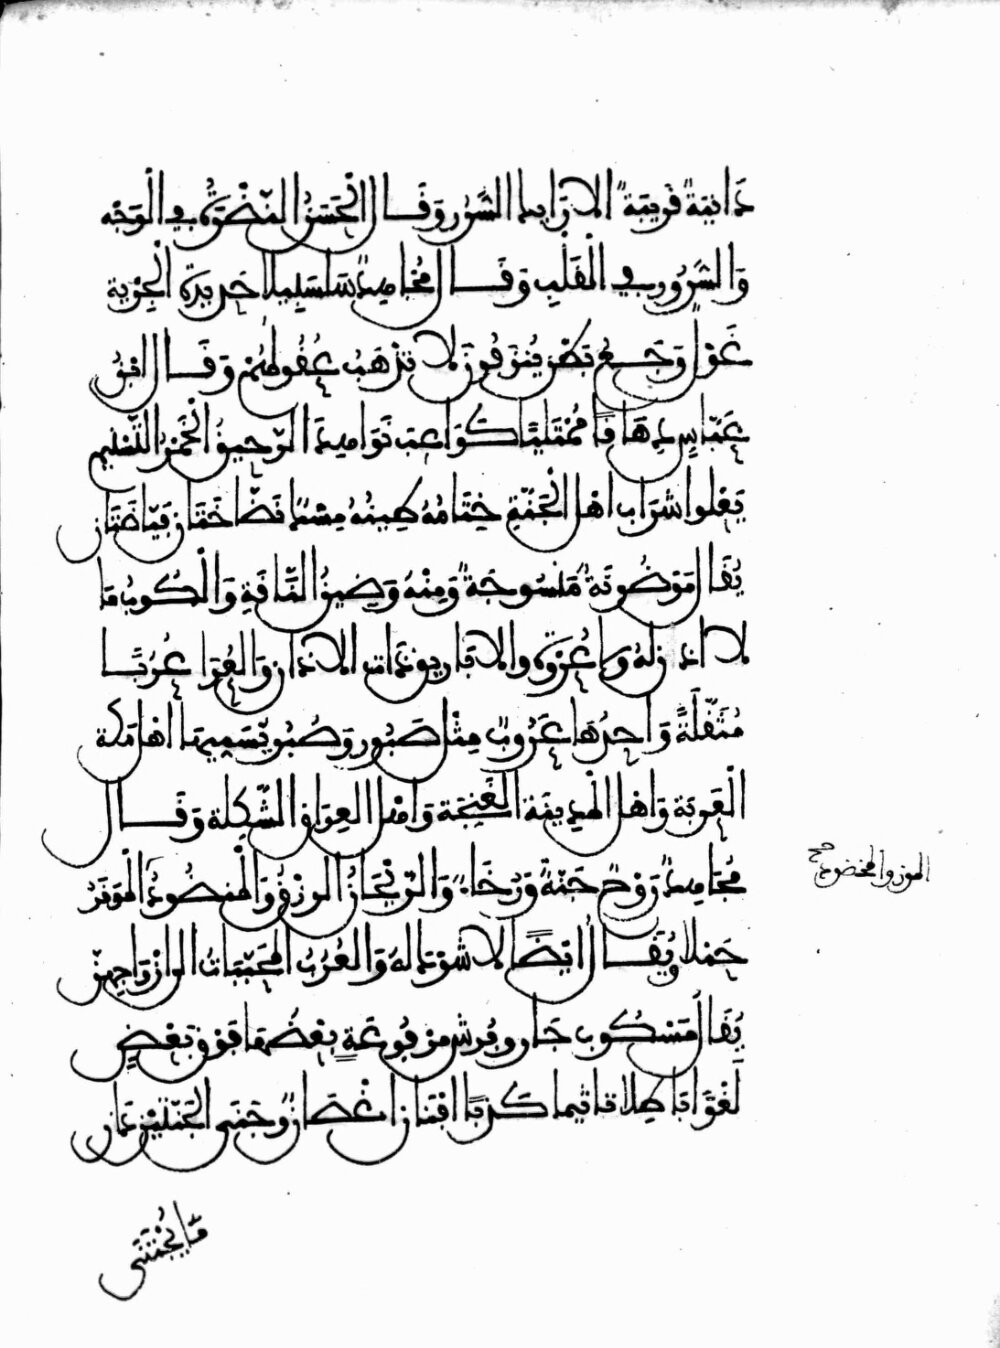 دَانِيَةٌ قَرِيبَةٌ الارَايِك السُّرُر وَقَال الْحَسَنُ النَّضْرَةُ فِي الْوَجْه
وَالسُّرُورُ فِي الْقَلْبِ وَقَال مُجَاهِدٌ سَلْسَبِيلا حَدِيدَة الْجِرْيَة
غَوْلٌ وَجَعُ بَطْنٍ يُنْزَفُونَ لا تَذْهَبُ عُقُولُهُمْ وَقَال ابْنُ
عَبَّاسٍ دِهَاقًا مُمْتَلِيًا كَوَاعِبَ نَوَاهِدَ الرَّحِيقُ الْخَمْرُ التَّسْنِيم
يَعْلُوا شَرَابَ اهْلِ الْجَنَّةِ خِتَامُهُ طِينُهُ مِسْكٌ نَضَّاخَتَانِ فَيَّاضَتَانِ
يُقَال مَوْضُونَةٌ مَنْسُوجَةٌ وَمِنْهُ وَضِينُ النَّاقَةِ وَالْكُوبُ مَا
لا اذن لهُ ولا عُرْوَة والابَارِيقُ ذَوَات الاذَانِ وَالْعُرَا عُرُبًا
مُثَقَّلَةً وَاحِدُهَا عَرُوبٌ مِثْل صَبُورٍ وَصُبُرٍ يُسَمِّيهَا اهْل مَكَّة
الْعَرِبَة وَاهْل الْمَدِينَة الْغَنِجَة وَاهْل الْعِرَاقِ الشَّكِلَة وَقَال
مُجَاهِدٌ رَوْحٌ جَنَّةٌ وَرَخَاءٌ وَالرَّيْحَانُ الرِّزْقُ وَالْمَنْضُودُ الْمَوْزُ
الموز والمخضود صح
حَمْلا وَيُقَال ايْضًا لا شَوْكَ لهُ وَالْعُرُبُ الْمُحَبَّبَاتُ الى ازْوَاجِهِنَّ
يُقَال مَسْكُوب جَارٍ وفُرُش مَرْفُوعَةٍ بَعْضُهَا فَوْقَ بَعْضٍ
لَغْوًا بَاطِلا تَاثِيمًا كَذِبًا افْنَان اغْصَانٌ وَجَنَى الْجَنَّتَيْنِ دَانٍ
مَا يُجْتَنَى